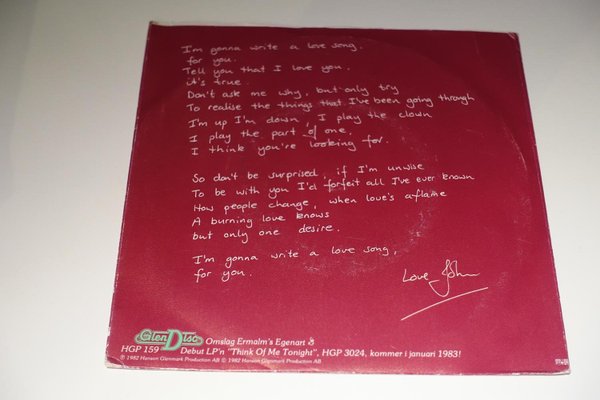 I'm gonna write a love song.
for you.
Tell you that I love you.
it's true.
Don't ask me why, but only try
To realise the things that I've been going through
I'm up I'm down, I play the clown
I play the part of one.
I think you're looking for.
So don't be surprised, if I'm unwise
To be with you I'd forfeit all I've ever known
How people change, when love's aflame
A burning love knows
but only one desire.
I'm gonna write a love song,
for you.
Love John
Glen Disc
Omslag Ermalm's Egenart
HGP 159 Debut LP'n "Think Of Me Tonight", HGP 3024, kommer i januari 1983!
℗ 1982 Hanson Glenmark Production AB © 1982 Hanson Glenmark Production AB